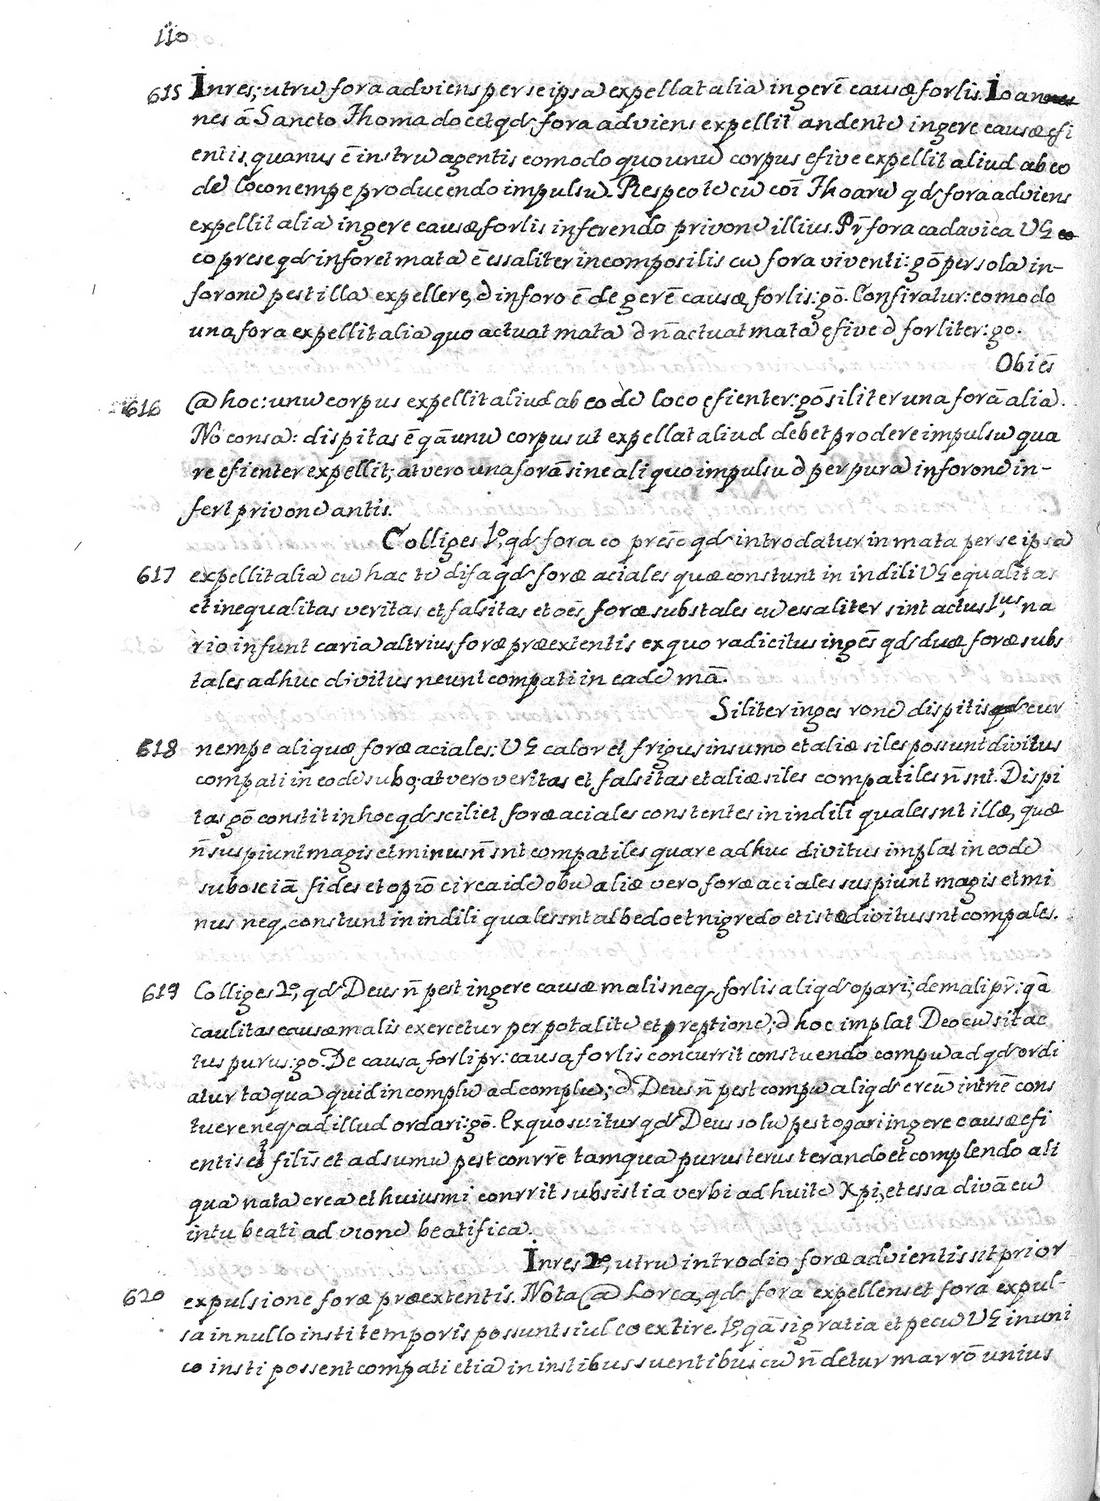 110
615 Inres; utrũ fora adviens per se ipsa expellat alia in gerẽ causæ forlis. Ioannes
nes â Sancto Thoma docet qd fora adviens expellit andente in gere causæ efi
entis, quanus ẽ instrũ agentis eomodo quo unũ corpus efive expellit aliud ab eo
de loco nempe producendo impulsũ. Respeo te cũ coĩ Thoarũ qd fora adviens
expellit alia in gere causæ forlis inferendo privone illius. Pr̃ fora cadavica VG
eo prese qd inforet mata ẽ essaliter incomposilis cũ fora viventi: gõ per sola in-
forone pest illa expellere, d inforo ẽ de gerẽ causæ forlis: gõ. Confiratur: eomodo
una fora expellit alia quo actuat mata d ñ actuat mata efive d forliter: go.
Obiẽs
616 @ hoc: unũ corpus expellit aliud ab eo dẽ loco efienter: gõ siliter una forã alia.
No consa: dispitas ẽ qã unũ corpus ut expellat aliud debet prodere impulsũ qua
re efienter expellit; at vero una forã sine aliquo impulsu d per pura inforone in-
fert privone antis.
Colliges 1º, qd fora eo presẽ qd introdatur in mata per se ipsa
617 expellit alia cũ hac te difa qd foræ aciales quæ constunt in indili VG equalitas
et inequalitas veritas et falsitas et oẽs foræ substales cũ essaliter sint actus 1us na
rio infunt caria altrius foræ præextentis ex quo radicitus ingẽs qd duæ foræ subs
tales adhuc divitus neunt compati in eade mã.
Siliter inges rone dispitis cur
618 nempe aliquæ foræ aciales: VG calor et frigus in sumo et aliæ siles possunt divitus
compati in eode subo; at vero veritas et falsitas et aliæ siles compatiles ñ snt. Dispi
tas gõ constit in hoc qd sciliet foræ aciales constentes in indili quales snt illæ, quæ
ñ suspiunt magis et minus ñ snt compatiles quare adhuc divitus implat in eode
subo sciã fides et opiõ circa ide obũ aliæ vero foræ aciales suspiunt magis et mi
nus neq constunt in indili quales snt albedo et nigredo et istæ divitus snt compales.
619 Colliges 2º, qd Deus ñ pest in gere causæ malis neq forlis aliqd opari; de mali pr̃: qã
caulitas causæ malis exercetur per potalite et preptione; d hoc implat Deo cũ sit ac
tus purus: go. De causa forli pr: causa forlis concurrit constuendo compũ ad qd ordi
atur taqua quid incomplũ ad complũ; d Deus ñ pest compũ aliqd ercũ intriẽ cons
tuere neq ad illud ordari: gõ. Ex quo suitur qd Deus solũ pest opari in gere causæ efi
entis et filis et ad sumũ pest conrrẽ tamqua purus terus terando et complendo ali
qua nata crea et huiusmi conrrit subsistia verbi ad huite Xpi, et essa divã cũ
intu beati ad vione beatifica.
Inres 2º, utrũ introdio foræ advientis sit prior
620 expulsione foræ præextentis. Nota @ Lorca, qd fora expellens et fora expul-
sa in nullo insti temporis possunt siul coextire. 1º, qã si gratia et pecũ VG in uni
co insti possent compati etiã in instibus suentibus cũ ñ detur mar rõ unius